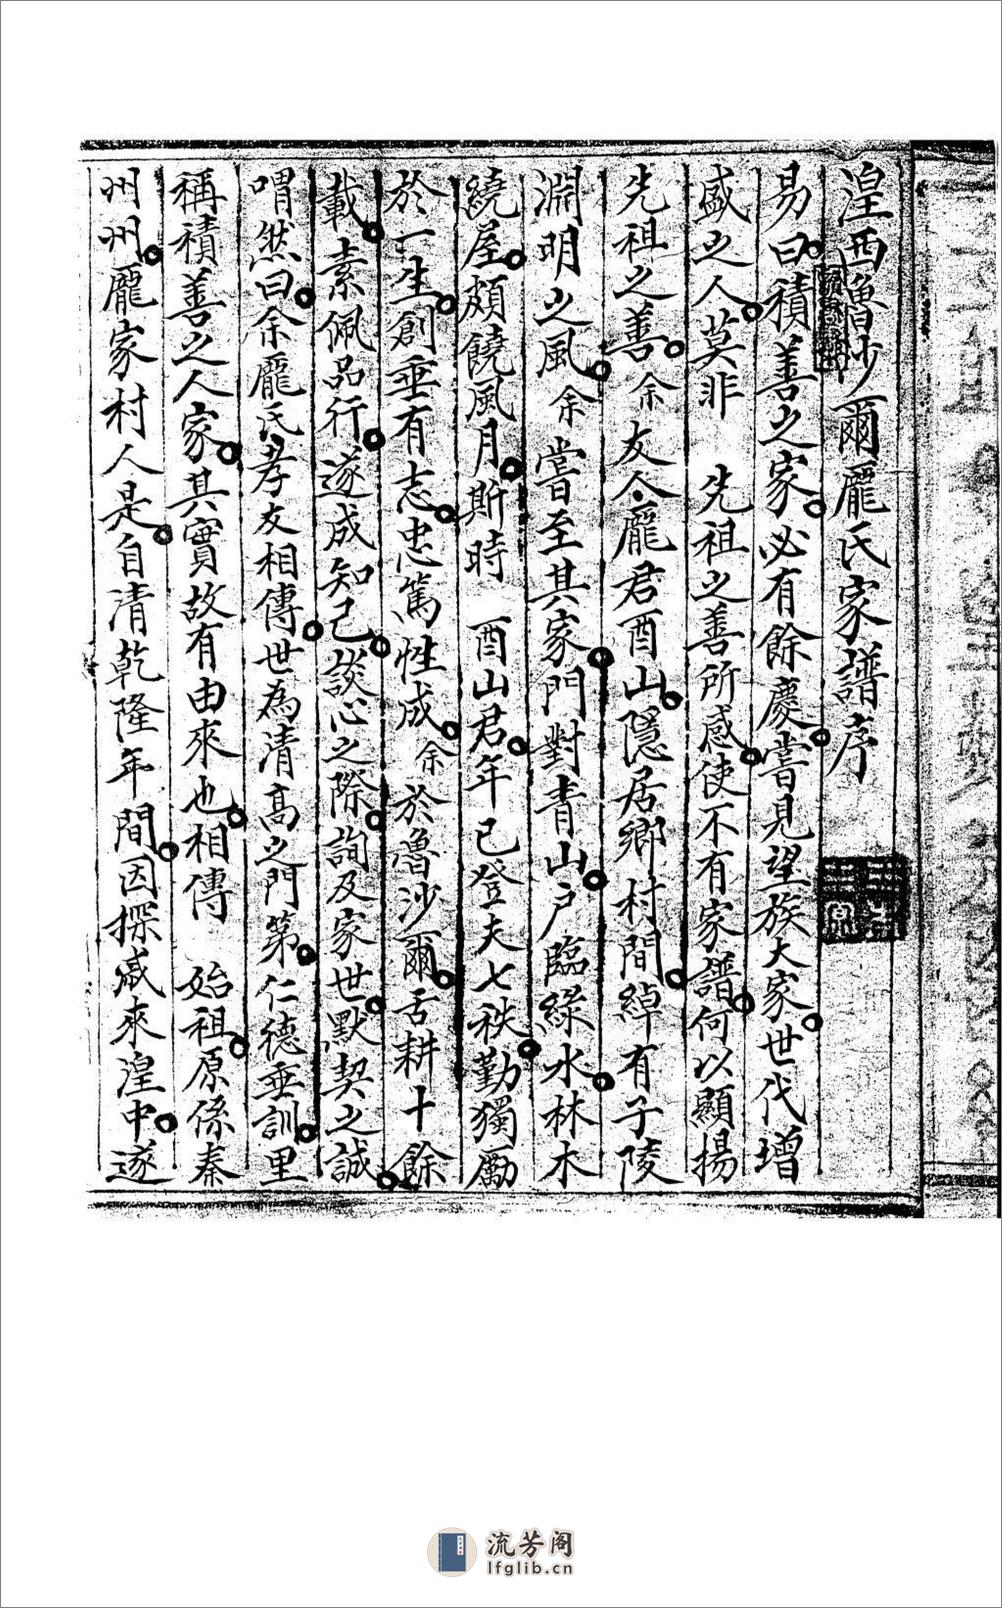 湟西魯沙爾龐氏家譜序
易曰積善之家必有餘慶嘗見望族大家世代增
盛之人莫非 先祖之善所感使不有家譜何以顯揚
先祖之善余友人龐君酉山隱居鄉村間綽有子陵
淵明之風余嘗至其家門對青山戶臨綠水林木
繞屋頗饒風月斯時 酉山君年已登夫七秩勤獨勵
於一生創垂有志忠篤性成余於魯沙爾舌耕十餘
載素佩品行遂成知己談心之際詢及家世默契之誠
喟然曰余龐氏孝友相傳世為清高之門第仁德垂訓里
稱積善之人家其實故有由來也相傳 始祖原係秦
州州龐家村人是自清乾隆年間因探戚來湟中遂
流芳阁
lfglib.cn